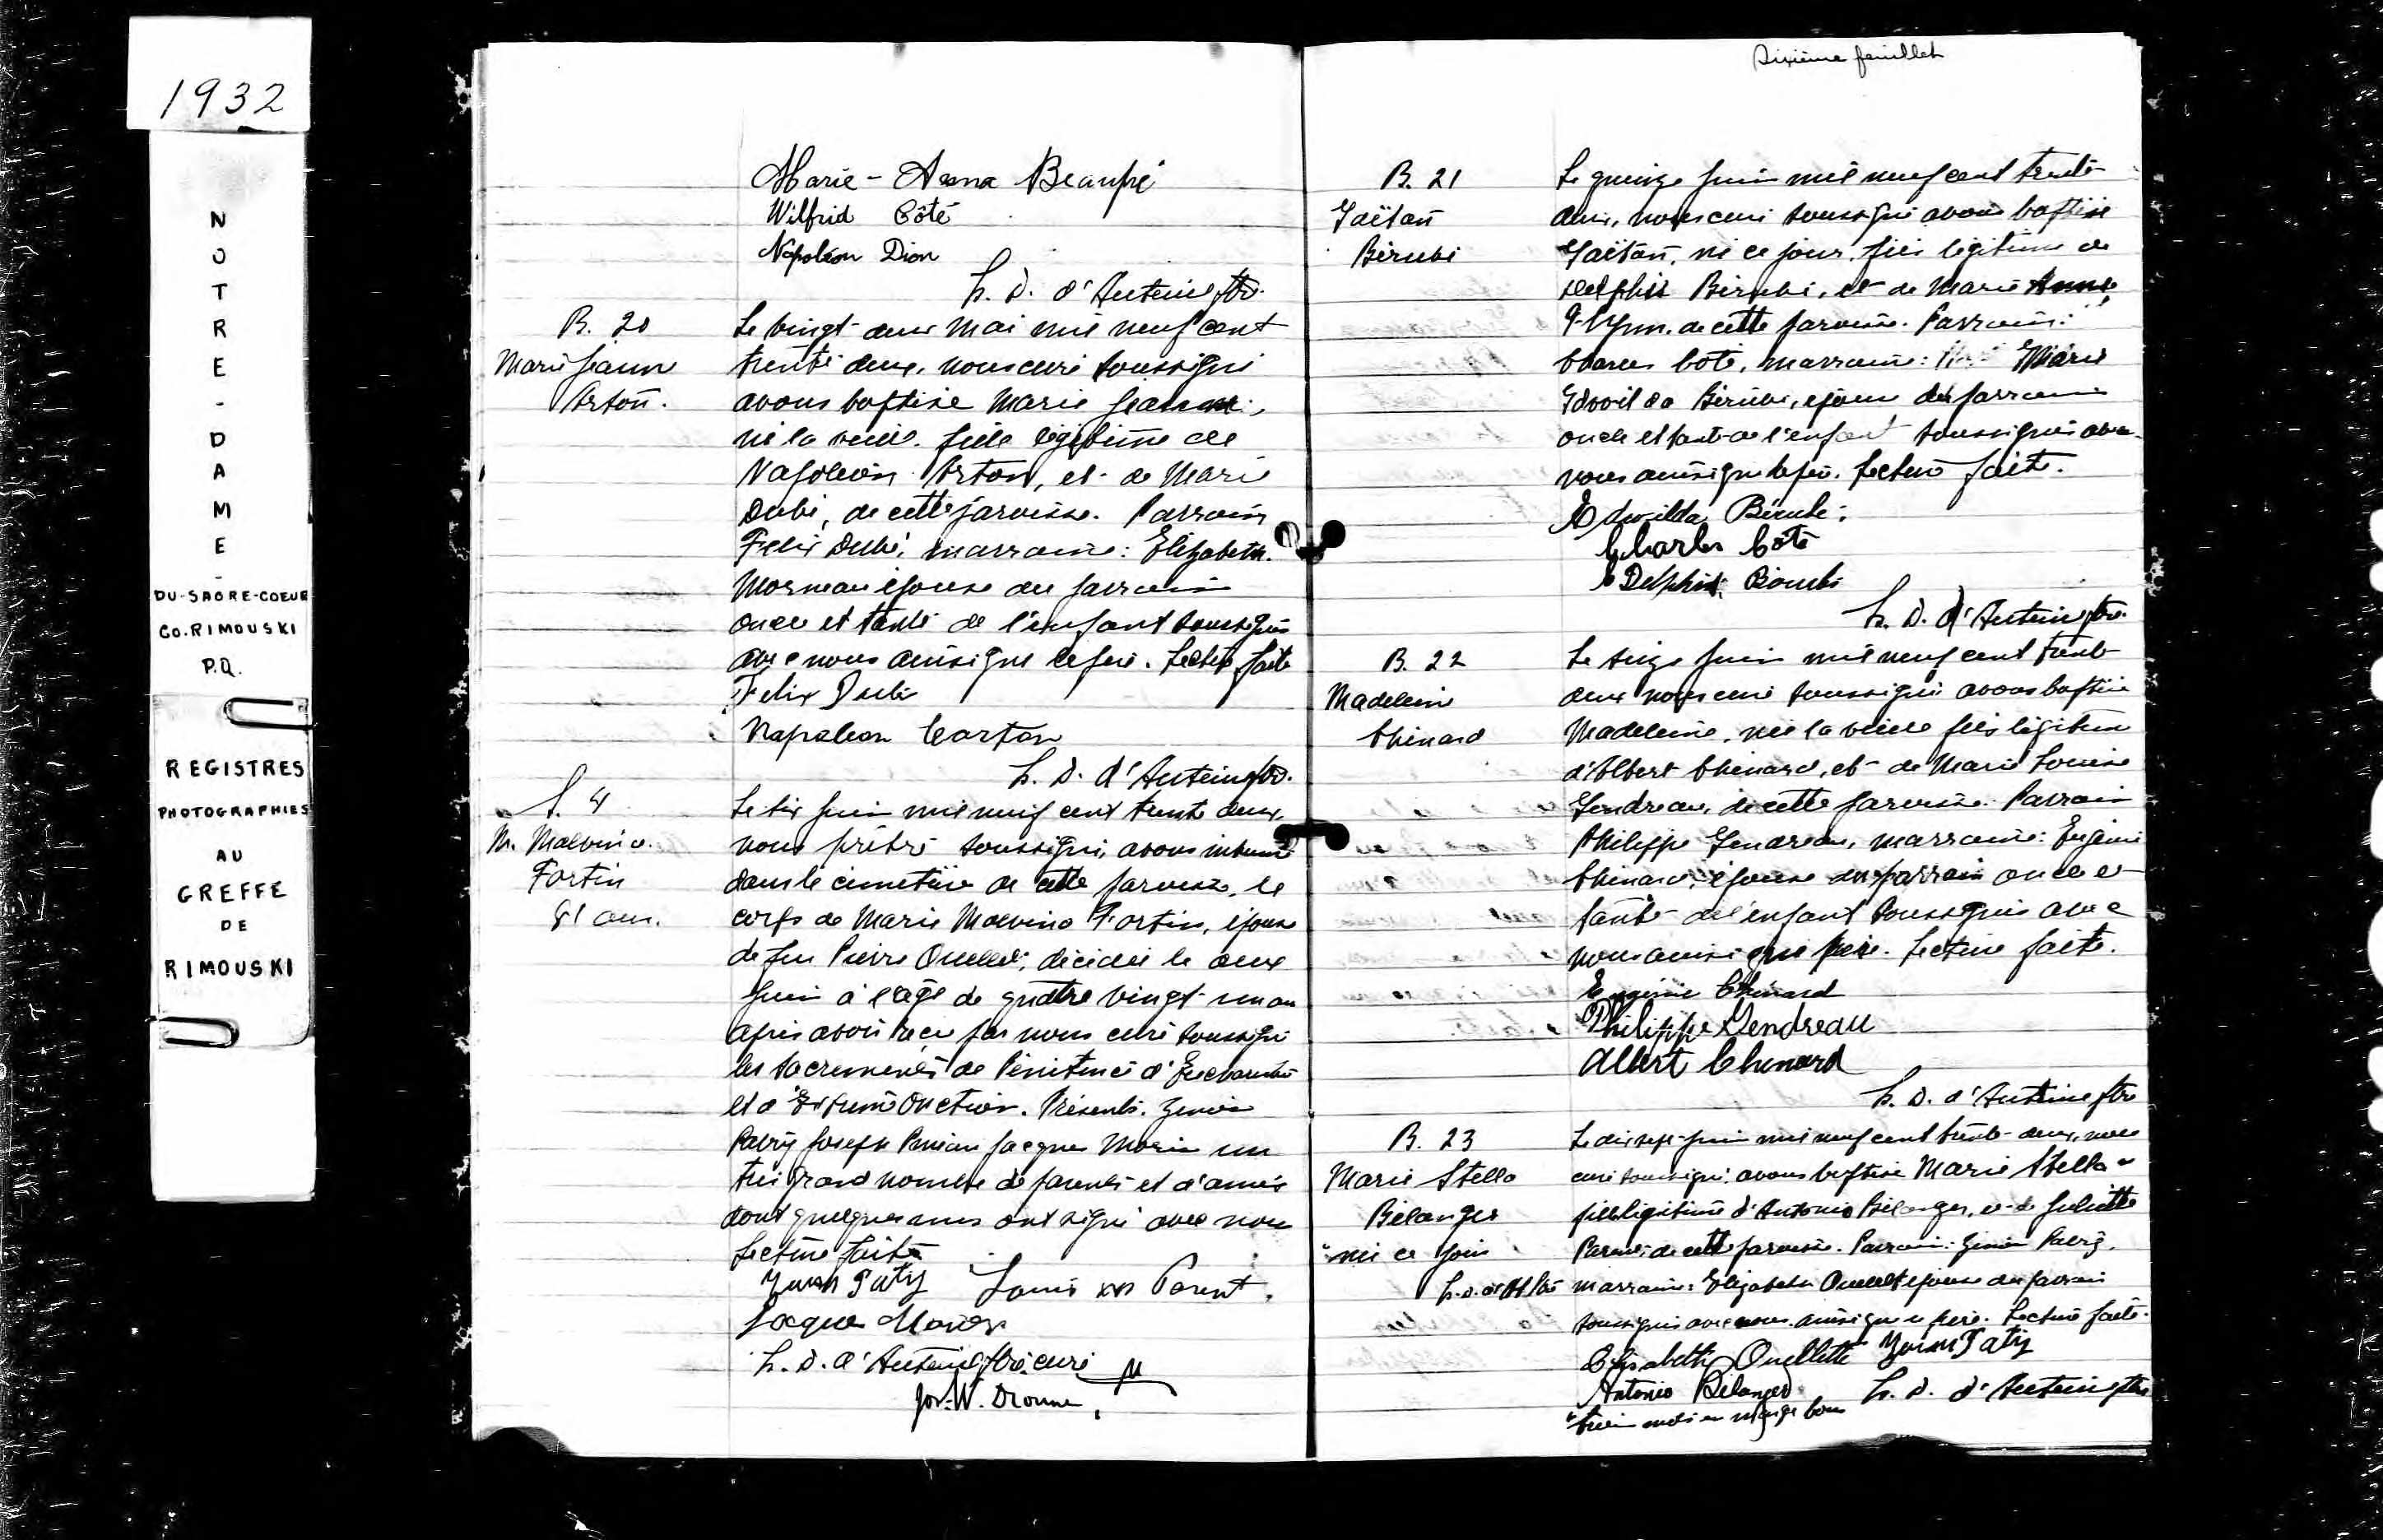 1932
NOTRE-DAME-
DU-SACRE-COEUR
CO. RIMOUSKI
P.Q.
REGISTRES
PHOTOGRAPHIES
AU
GREFFE
DE
RIMOUSKI
Marie-Anna Beaupré
Wilfrid Côté
Napoléon Dion
L. D. d'Auteuil ptre.
B. 20
Marie Jeanne
Arton.
Le vingt-deux mai mil neuf cent
trente deux, nous curé soussigné
avons baptisé Marie Jeanne,
née la veille, fille légitime de
Napoléon Arton, et de Marie
Dubé, de cette paroisse. Parrain
Felix Dubé, marraine: Elizabeth
Morneau épouse du parrain
oncle et tante de l'enfant soussignés
avec nous ainsi que le père. Lecture faite
Felix Dubé
Napoleon Carton
L. D. d'Auteuil ptre.
S. 4
M. Malvina
Fortin
81 ans.
Le six juin mil neuf cent trente deux,
nous prêtre soussigné, avons inhumé
dans le cimetière de cette paroisse, le
corps de Marie Malvina Fortin, épouse
de feu Pierre Ouellet, décédée le deux
juin à l'âge de quatre vingt-un an
après avoir reçu par nous curé soussigné
les sacrements de Pénitence d'Eucharistie
et d'Extrême Onction. Présents.
Joseph Jacques Morin un
très grand nombre de parents et d'amis
dont quelques uns ont signé avec nous
Lecture faite
Louis Parent.
Jacques Morin
L. D. d'Auteuil ptre curé
Jos. W. Drouin
Dixième feuillet
B. 21
Gaëtan
Bérubé
Le quinze juin mil neuf cent trente
deux, nous curé soussigné avons baptisé
Gaëtan, né ce jour, fils légitime de
Delphis Bérubé, et de Marie Anne
de cette paroisse. Parrain:
Charles Côté, marraine: Marie
Edwilda Bérubé, épouse du parrain
oncle et tante de l'enfant soussignés avec
nous ainsi que le père. Lecture faite.
Edwilda Bérubé
Charles Coté
Delphis Bérubé
L. D. d'Auteuil ptre.
B. 22
Madeleine
Chénard
Le seize juin mil neuf cent trente
deux nous curé soussigné avons baptisé
Madeleine, née la veille fille légitime
d'Albert Chénard, et de Marie Louise
Gendreau, de cette paroisse. Parrain
Philippe Gendreau, marraine: Eugénie
Chénard, épouse du parrain oncle et
tante de l'enfant soussignés avec
nous ainsi que père. Lecture faite.
Eugénie Chénard
Philippe Gendreau
Albert Chenard
L. D. d'Auteuil ptre
B. 23
Marie Stella
Bélanger
"née ce jour
L. D. d'A ptre
Le dix sept juin mil neuf cent trente-deux, nous
curé soussigné avons baptisé Marie Stella "
fille légitime d'Antonio Bélanger, et de Juliette
Parent de cette paroisse. Parrain:
marraine: Elizabeth Ouellet épouse du parrain
soussignés avec nous ainsi que le père. Lecture faite.
Elisabeth Ouellette
Antonio Bélanger L. D. d'Auteuil ptre
"trois mots en marge bons